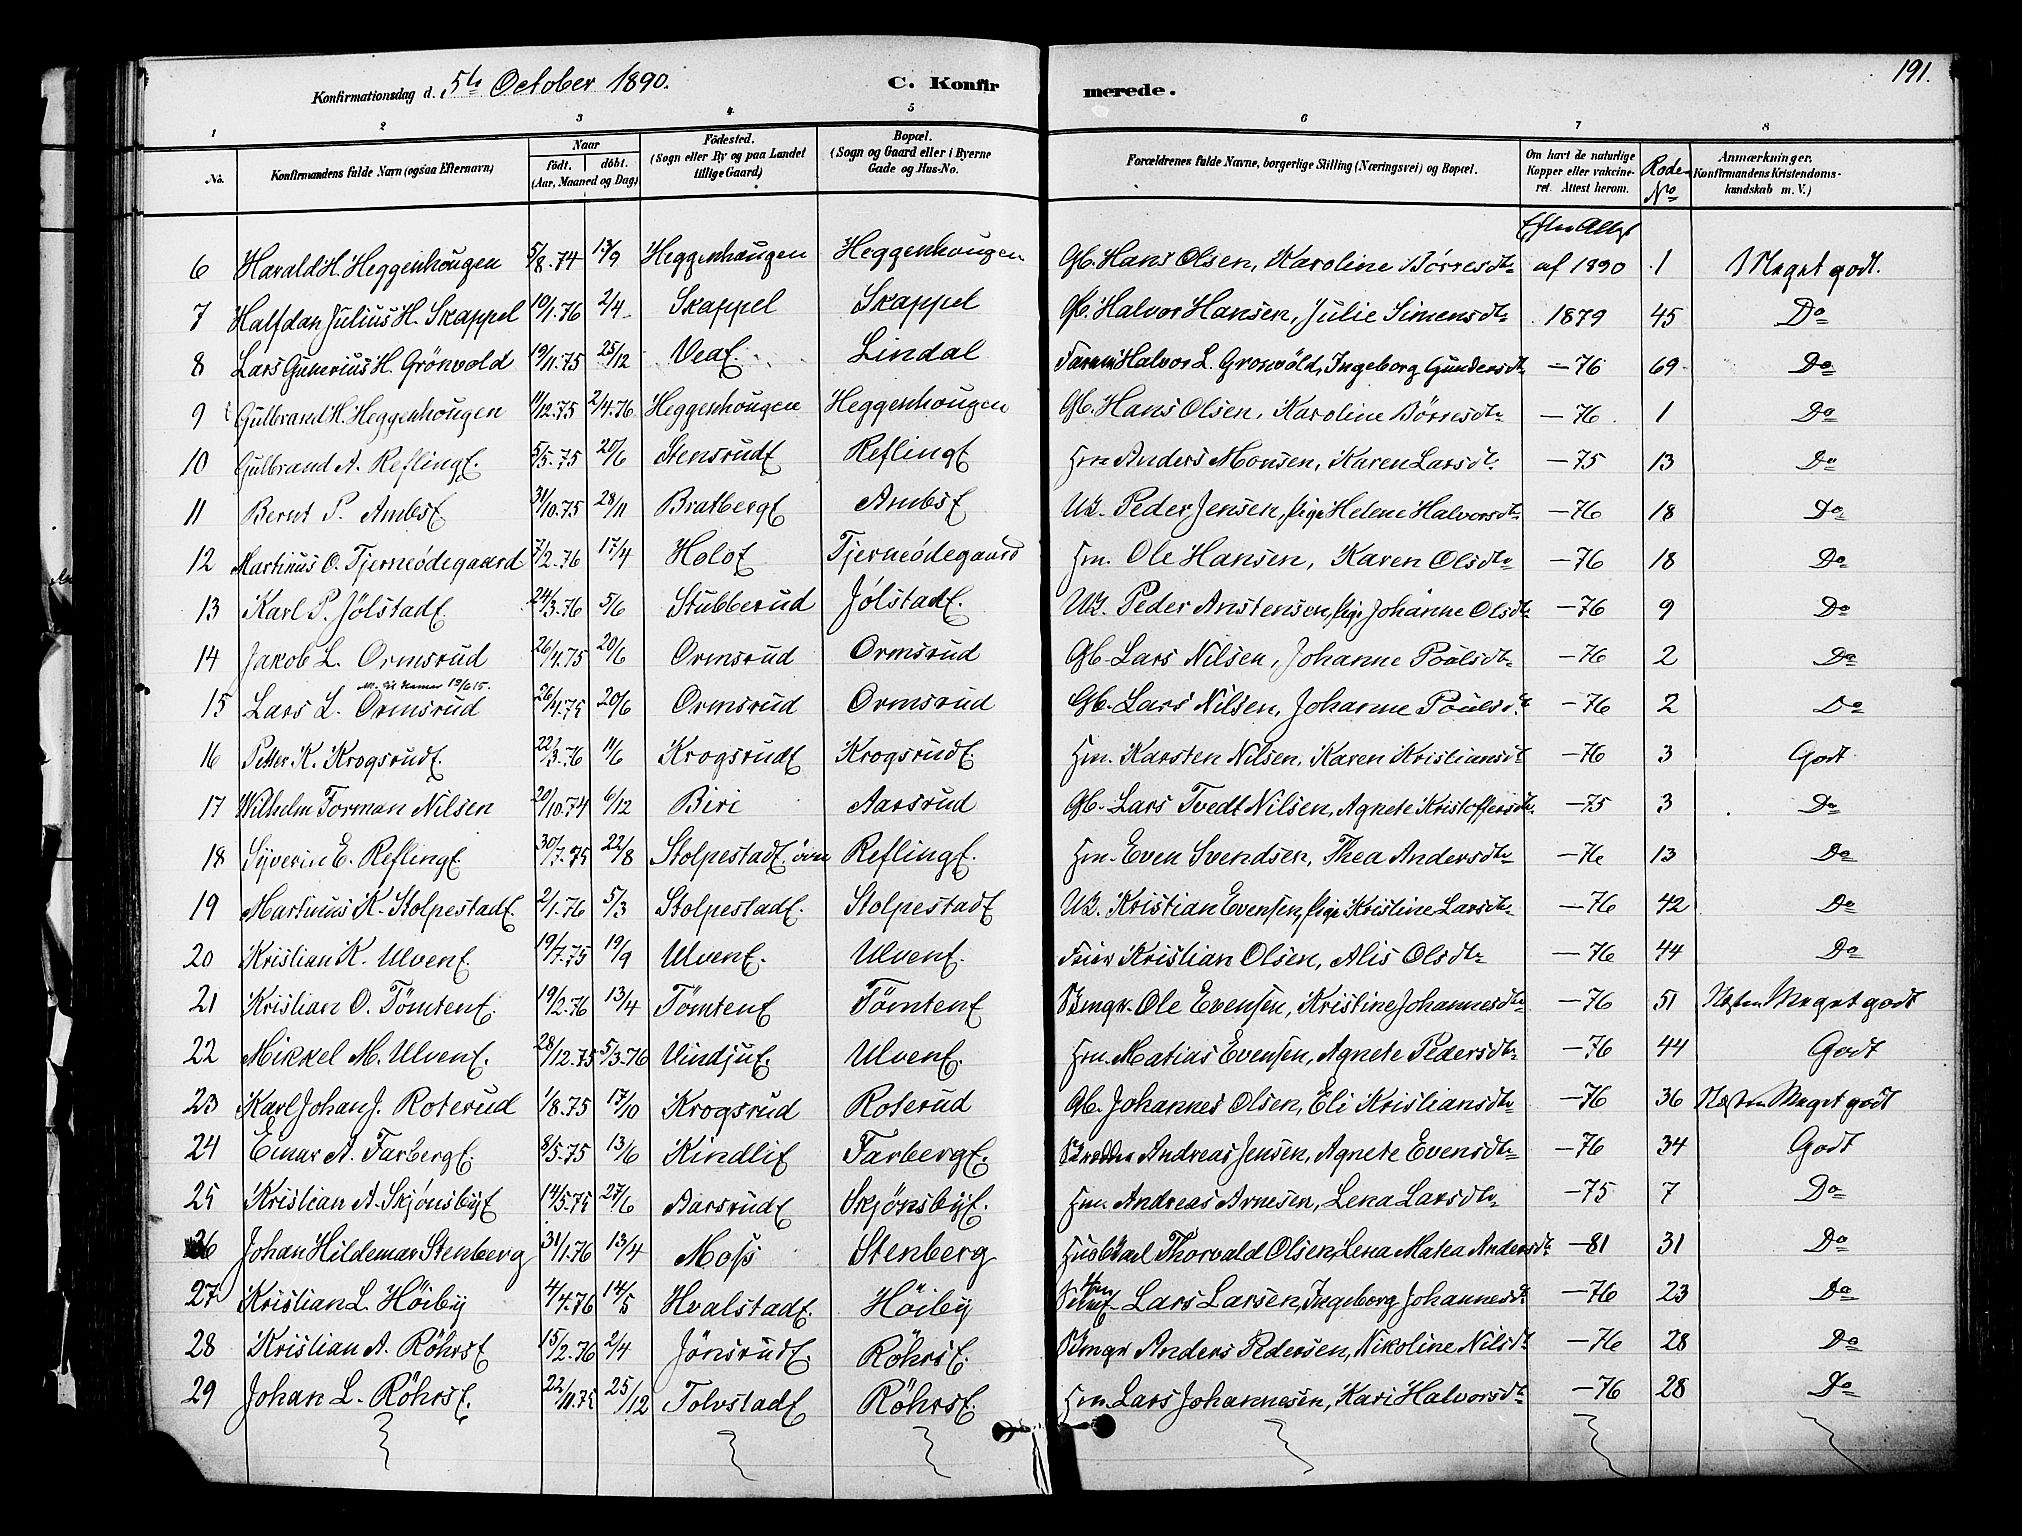 Konfirmationsdag d. 5te October 1890. C. Konfir merede. 191.
1 2 3 4 5 6 7 8
No. Konfirmandens fulde Navn (ogsaa Efternavn) Naar født. døbt. (Aar, Maaned og Dag) Fødested. (Sogn eller By og paa Landet tillige Gaard) Bopæl. (Sogn og Gaard eller i Byerne Gade og Hus-No. Forældrenes fulde Navne, borgerlige Stilling (Næringsvei) og Bopæl. Om havt de naturlige Kopper eller vakcineret. Attest herom. Rode No Anmærkninger. Konfirmandens Kristendomskundskab m. V.)
Efter Attest
6 Harald H. Heggenhougen 5/8.74 13/9 Heggenhaugen Heggenhougen Gb. Hans Olsen, Karoline Børresdtr af 1890 1 Meget godt.
7 Halfdan Julius H. Skappel 19/1.76 2/4 Skappel Skappel Gb. Halvor Hansen, Julie Simensdtr 1879 45 Do
8 Lars Gunerius H. Grönvold 19/11.75 25/12 Veaf. Lindal Halvor L. Gronvöld, Ingeborg Gundersdtr -76 69 Do
9 Gulbrand H. Heggenhougen 11/12.75 2/4.76 Heggenhougen Heggenhougen Gb. Hans Olsen, Karoline Børresdtr -76 1 Do
10 Gulbrand A. Reflingf. 5/5.75 20/6 Stensrudf Reflingf Hm Anders Monsen, Karen Larsdtr -75 13 Do
11 Bernt P. Ambsf 31/10.75 28/11 Bratbergf Ambsf Ug. Peder Jensen, Pige Helene Halvorsdtr -76 18 Do
12 Martinus O. Tjerneödegaard 7/2.76 17/4 Holof Tjerneödegaard Hm. Ole Hansen, Karen Olsdtr -76 18 Do
13 Karl P. Jölstadf. 24/3.76 5/6 Stubberud Jölstadf. Ug. Peder Anstensen, Pige Johanne Olsdtr -76 9 Do
14 Jakob L. Ormsrud 26/4.75 20/6 Ormsrud Ormsrud Gb. Lars Nilsen, Johanne Poulsdtr -76 2 Do
15 Lars L. Ormsrud 26/4.75 20/6 Ormsrud Ormsrud Gb. Lars Nilsen, Johanne Poulsdtr -76 2 Do
16 Petter K. Krogsrudf. 22/3.76 11/6 Krogsrudf Krogsrudf. Hm. Karsten Nilsen, Karen Kristiansdtr -76 3 Godt
17 Wilhelm Forman Nilsen 20/10.74 6/12 Biri Aarsrud Gb. Lars Tvedt Nilsen, Agnete Kristoffersdtr. -75 3 Do
18 Syverin E. Reflingf. 30/7.75 22/8 Stolpestadf. Reflingf. Hm. Even Svendsen, Thea Andersdtr -76 13 Do
19 Martinus K. Stolpestadf. 2/1.76 5/3 Stolpestadf. Stolpestadf Ug. Kristian Evensen, Pige Kristine Larsdtr -76 42 Do
20 Kristian K. Ulvenf. 19/7.75 19/9 Ulvenf. Ulvenf. Kristian Olsen, Alis Olsdtr -76 44 Do
21 Kristian O. Tömtenf. 19/2.76 13/4 Tömtenf Tömtenf Bmgr. Ole Evensen, Kristine Johannesdtr -76 51 Næsten Meget godt
22 Mikkel M. Ulvenf. 28/12.75 5/3.76 Vindjuf. Ulvenf. Hm. Matias Evensen, Agnete Pedersdtr -76 44 Godt
23 Karl Johan J. Roterud 1/8.75 17/10 Krogsrud Roterud Gb. Johannes Olsen, Eli Kristiansdtr -76 36 Næsten Meget godt
24 Einar A. Farbergf. 8/5.75 13/6 Kindlif Farbergf. Andreas Jensen, Agnete Evensdtr -76 34 Godt
25 Kristian A. Skjönsbyf 14/5.75 27/6 Aarsrudf Skjönsbyf. Hm. Andreas Arnesen, Lena Larsdtr -75 7 Do
26 Johan Hildemar Stenberg 31/1.76 13/4 Moss Stenberg Thorvald Olsen, Lena Matea Andersdtr -81 31 Do
27 Kristian L. Höiby 4/4.76 14/5 Hvalstadf. Höiby Lars Larsen, Ingeborg Johannesdtr -76 23 Do
28 Kristian A. Röhrsf 15/2.76 2/4 Jönsrudf. Röhrsf. Bmgr Anders Pedersen, Nikoline Nilsdtr -76 28 Do
29 Johan L. Röhrsf. 22/11.75 25/12 Tolvstadf Röhrsf. Hm. Lars Johannesen, Kari Halvorsdtr -76 28 Do